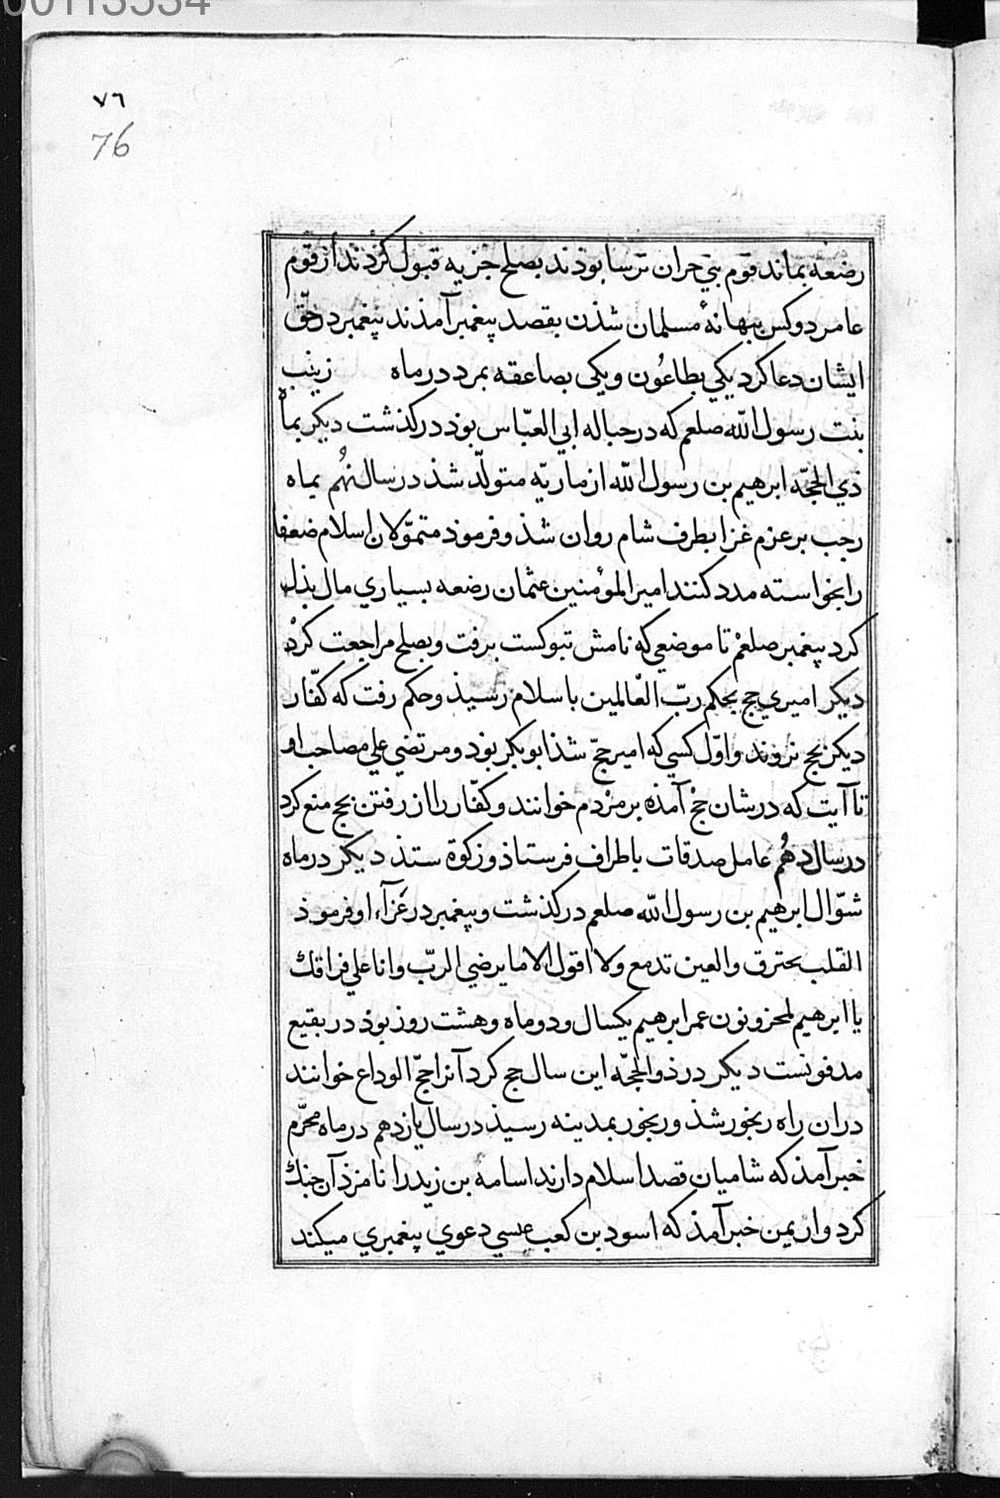 00113534
٧٦
76
رضعه بماند قوم بني حران ترسا بوذند بصلح جزيه قبول كردند از قوم
عامر دو كس ببهانهٔ مسلمان شذن بقصد پيغمبر آمذند پيغمبر در حقّ
ايشان دعا كرد يكي بطاعون ويكى بصاعقه بمرد در ماه زينب
بنت رسول الله صلعم كه در حباله ابي العبّاس بوذ در كذشت ديكر بماه
ذي الحجّه ابرهيم بن رسول الله از ماريّه متولّد شذ در سال نهُم بماه
رجب بر عزم غزا بطرف شام روان شذ وفرموذ متموّلان اسلام ضعفا
را بخواسته مدد كنند امير المؤمنين عثمان رضعه بسياري مال بذل
كرد پيغمبر صلعم تا موضعي كه نامش تبوكست برفت وبصلح مراجعت كرد
ديكر اميري حج بحكم ربّ العالمين باسلام رسيذ وحكم رفت كه كفّار
ديكر بحج نروند واوّل كسي كه امير حجّ شذ ابوبكر بوذ ومرتضي علي مصاحب او
تا آيت كه در شان حج آمذه بر مردم خوانند وكفّار را از رفتن بحج منع كرد
در سال دهُم عامل صدقات باطراف فرستاذ وزكوة ستذ ديكر در ماه
شوّال ابرهيم بن رسول الله صلعم در كذشت وپيغمبر در عزآء او فرموذ
القلب يحترق والعين تدمع ولا اقول الا ما يرضي الربّ وانا علي فراقك
يا ابرهيم لمحزونون عمر ابرهيم يكسال ودو ماه وهشت روز بوذ در بقيع
مدفونست ديكر در ذو الحجّه اين سال حج كرد آنرا حجّ الوداع خوانند
دران راه رنجور شذ ورنجور بمدينه رسيذ در سال يازدهم در ماه محرّم
خبر آمذ كه شاميان قصد اسلام دارند اسامة بن زيد را نامزذ آن جنك
كرد واز يمن خبر آمذ كه اسود بن كعب عيسي دعوي پيغمبري ميكند